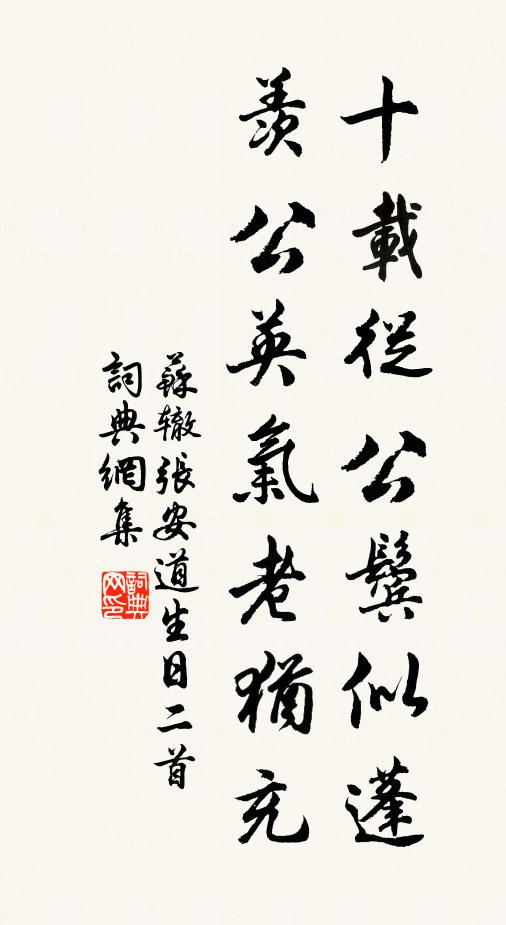 十載從公鬢似蓬
羨公英氣老猶充
蘇辙張安道生日二首
詞典網集
詞典網印